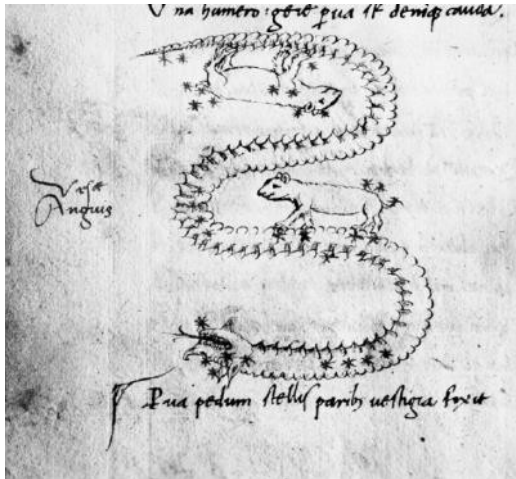 V na humero : gere pua st deniqꝫ cauda.
Vrsæ
Anguis
P ua pedum stellis paribꝫ uestigia fixit